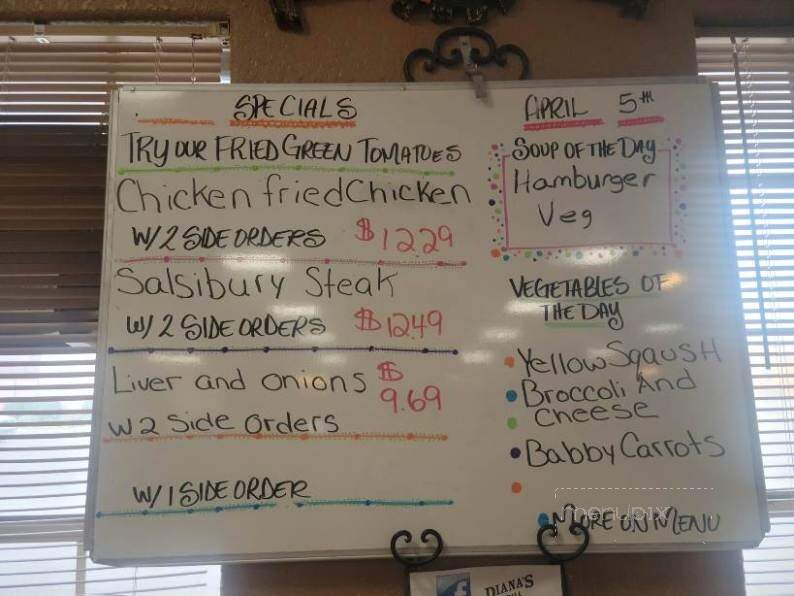 SPECIALS
TRY OUR FRIED GREEN TOMATOES
Chicken fried Chicken
W/2 SIDE ORDERS $12.29
Salsibury Steak
W/2 SIDE ORDERS $12.49
Liver and onions $
9.69
W 2 Side Orders
W/1 SIDE ORDER
APRIL 5TH
SOUP OF THE DAY
Hamburger
Veg
VEGETABLES OF
THE DAY
Yellow Sqaush
Broccoli And
Cheese
Babby Carrots
MORE ON MENU
menupix
DIANA'S